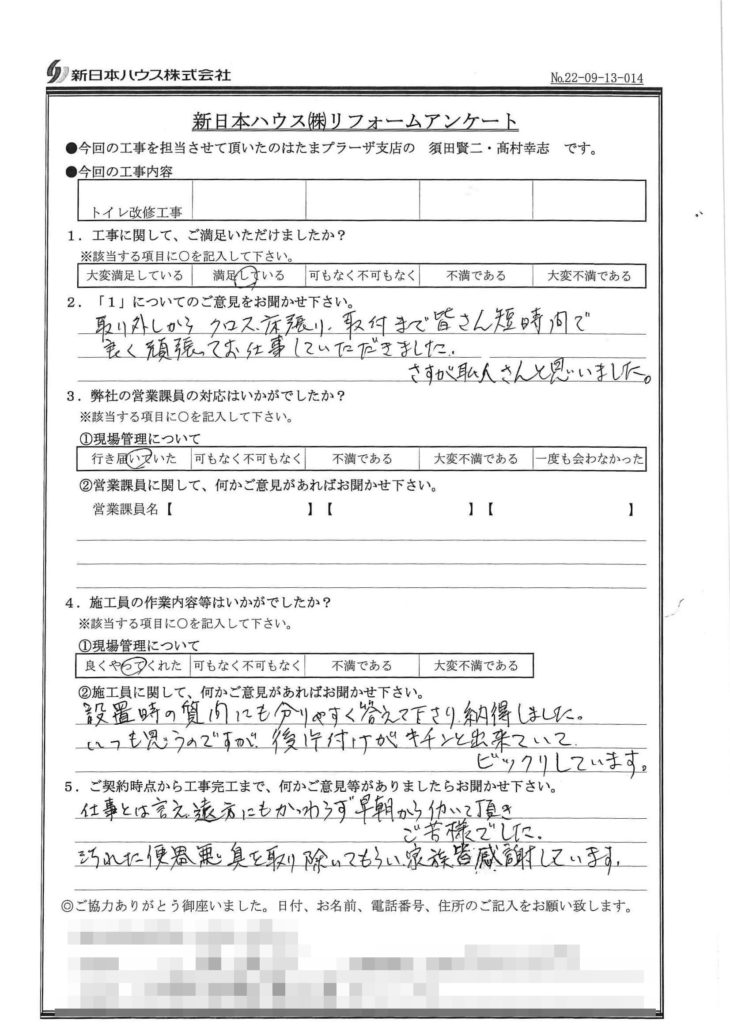 新日本ハウス株式会社
No.22-09-13-014
新日本ハウス㈱リフォームアンケート
●今回の工事を担当させて頂いたのはたまプラーザ支店の 須田賢二・髙村幸志 です。
●今回の工事内容
トイレ改修工事
1．工事に関して、ご満足いただけましたか？
※該当する項目に○を記入して下さい。
大変満足している 満足している 可もなく不可もなく 不満である 大変不満である
2．「1」についてのご意見をお聞かせ下さい。
取り外しから クロス、床張り、取付まで皆さん短時間で
良く頑張ってお仕事していただきました。
さすが職人さんと思いました。
3．弊社の営業課員の対応はいかがでしたか？
※該当する項目に○を記入して下さい。
①現場管理について
行き届いていた 可もなく不可もなく 不満である 大変不満である 一度も会わなかった
②営業課員に関して、何かご意見があればお聞かせ下さい。
営業課員名【 】【 】【 】
4．施工員の作業内容等はいかがでしたか？
※該当する項目に○を記入して下さい。
①現場管理について
良くやってくれた 可もなく不可もなく 不満である 大変不満である
②施工員に関して、何かご意見があればお聞かせ下さい。
設置時の質問にも分りやすく答えて下さり、納得しました。
いつも思うのですが、後片付けがキチンと出来ていて、
ビックリしています。
5．ご契約時点から工事完工まで、何かご意見等がありましたらお聞かせ下さい。
仕事とは言え、遠方にもかかわらず早朝から働いて頂き
ご苦様でした。
汚れた便器、悪い臭を取り除いてもらい、家族皆感謝しています。
◎ご協力ありがとう御座いました。日付、お名前、電話番号、住所のご記入をお願い致します。